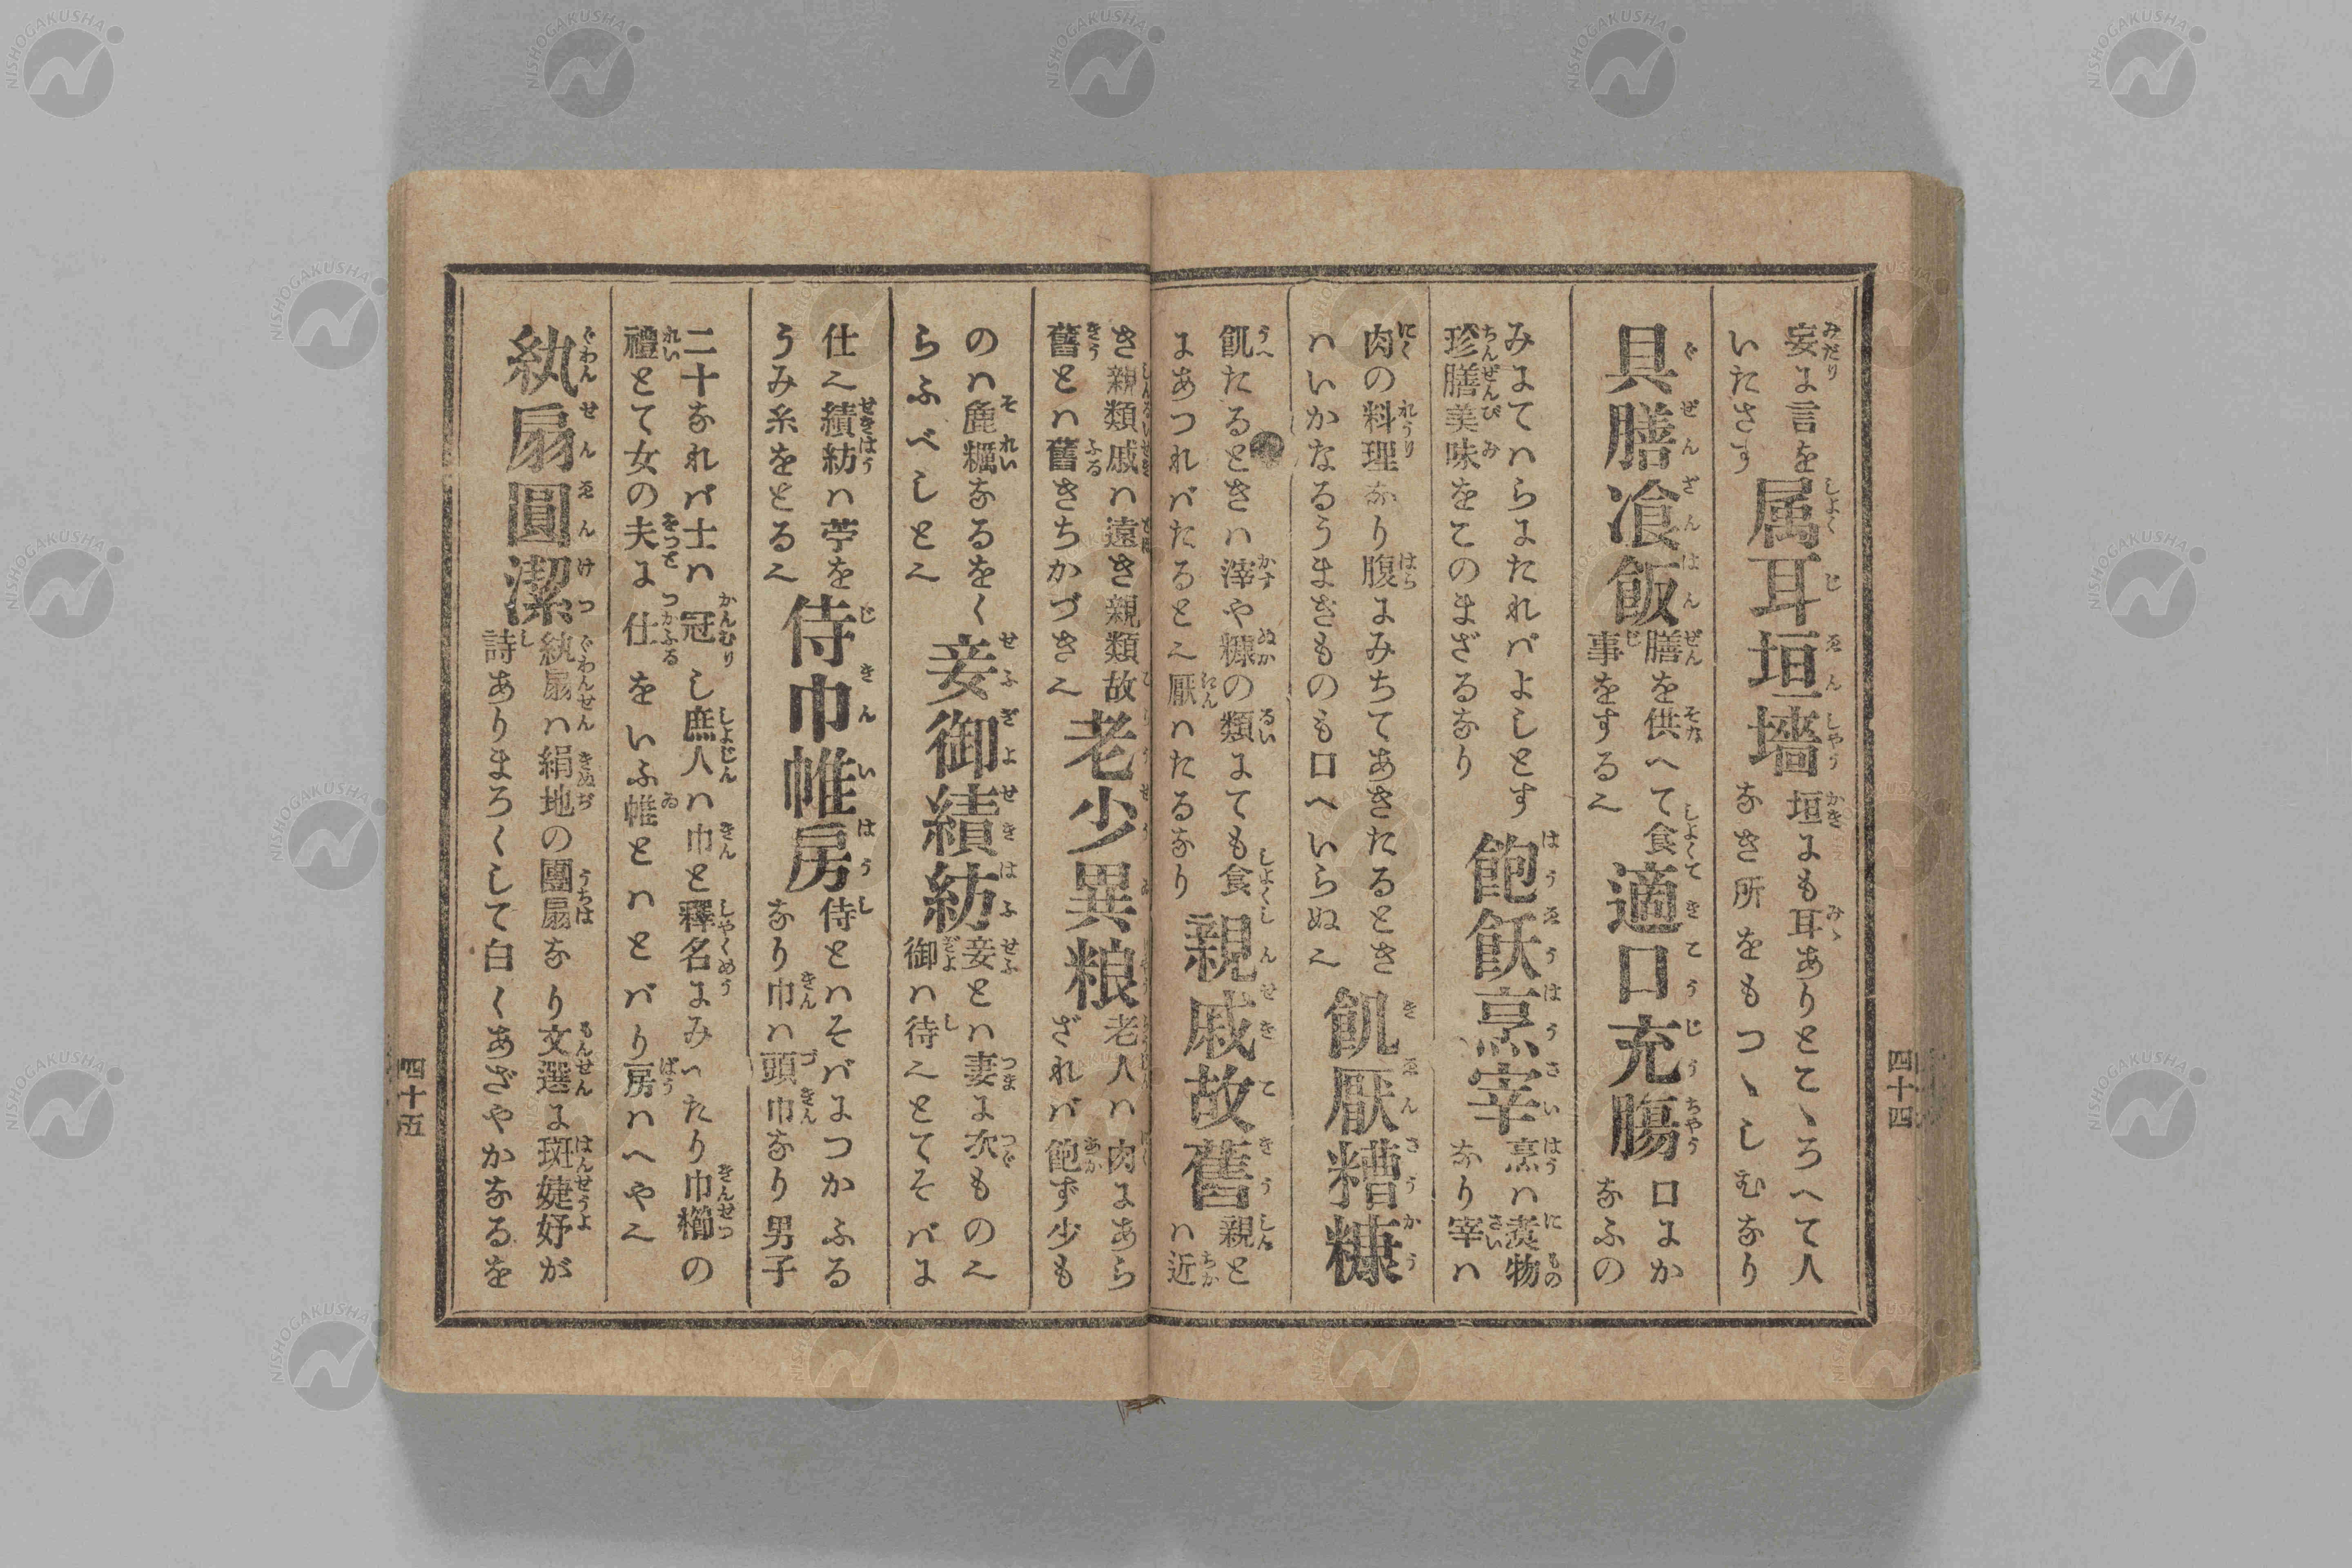 四十四
妄に言を
いたさす
属耳垣墻
垣にも耳ありとこゝろへて人
なき所をもつゝしむなり
具膳飡飯
膳を供へて食
事をする也
適口充膓
口にか
なふの
みにてハらにたれバよしとす
珍膳美味をこのまざるなり
飽飫烹宰
烹ハ煑物
なり宰ハ
肉の料理なり腹にみちてあきたるとき
ハいかなるうまきものも口へいらぬ也
飢厭糟糠
飢たるときハ滓や糠の類にても食
にあつれバたると也厭ハたるなり
親戚故舊
親と
ハ近
き親類戚ハ遠き親類故
舊とハ舊きちかづき也
老少異粮
老人ハ肉にあら
ざれバ飽ず少も
のハ麁糲なるをく
らふべしと也
妾御績紡
妾とハ妻に次もの也
御ハ待也とてそバに
仕也績紡ハ苧を
うみ糸をとる也
侍巾帷房
侍とハそバにつかふる
なり巾ハ頭巾なり男子
二十なれバ士ハ冠し庶人ハ巾と釋名にみへたり巾櫛の
禮とて女の夫に仕をいふ帷とハとバり房ハへや也
紈扇圓潔
紈扇ハ絹地の團扇なり文選に斑婕妤が
詩ありまろくして白くあざやかなるを
四十五
NISHOGAKUSHA